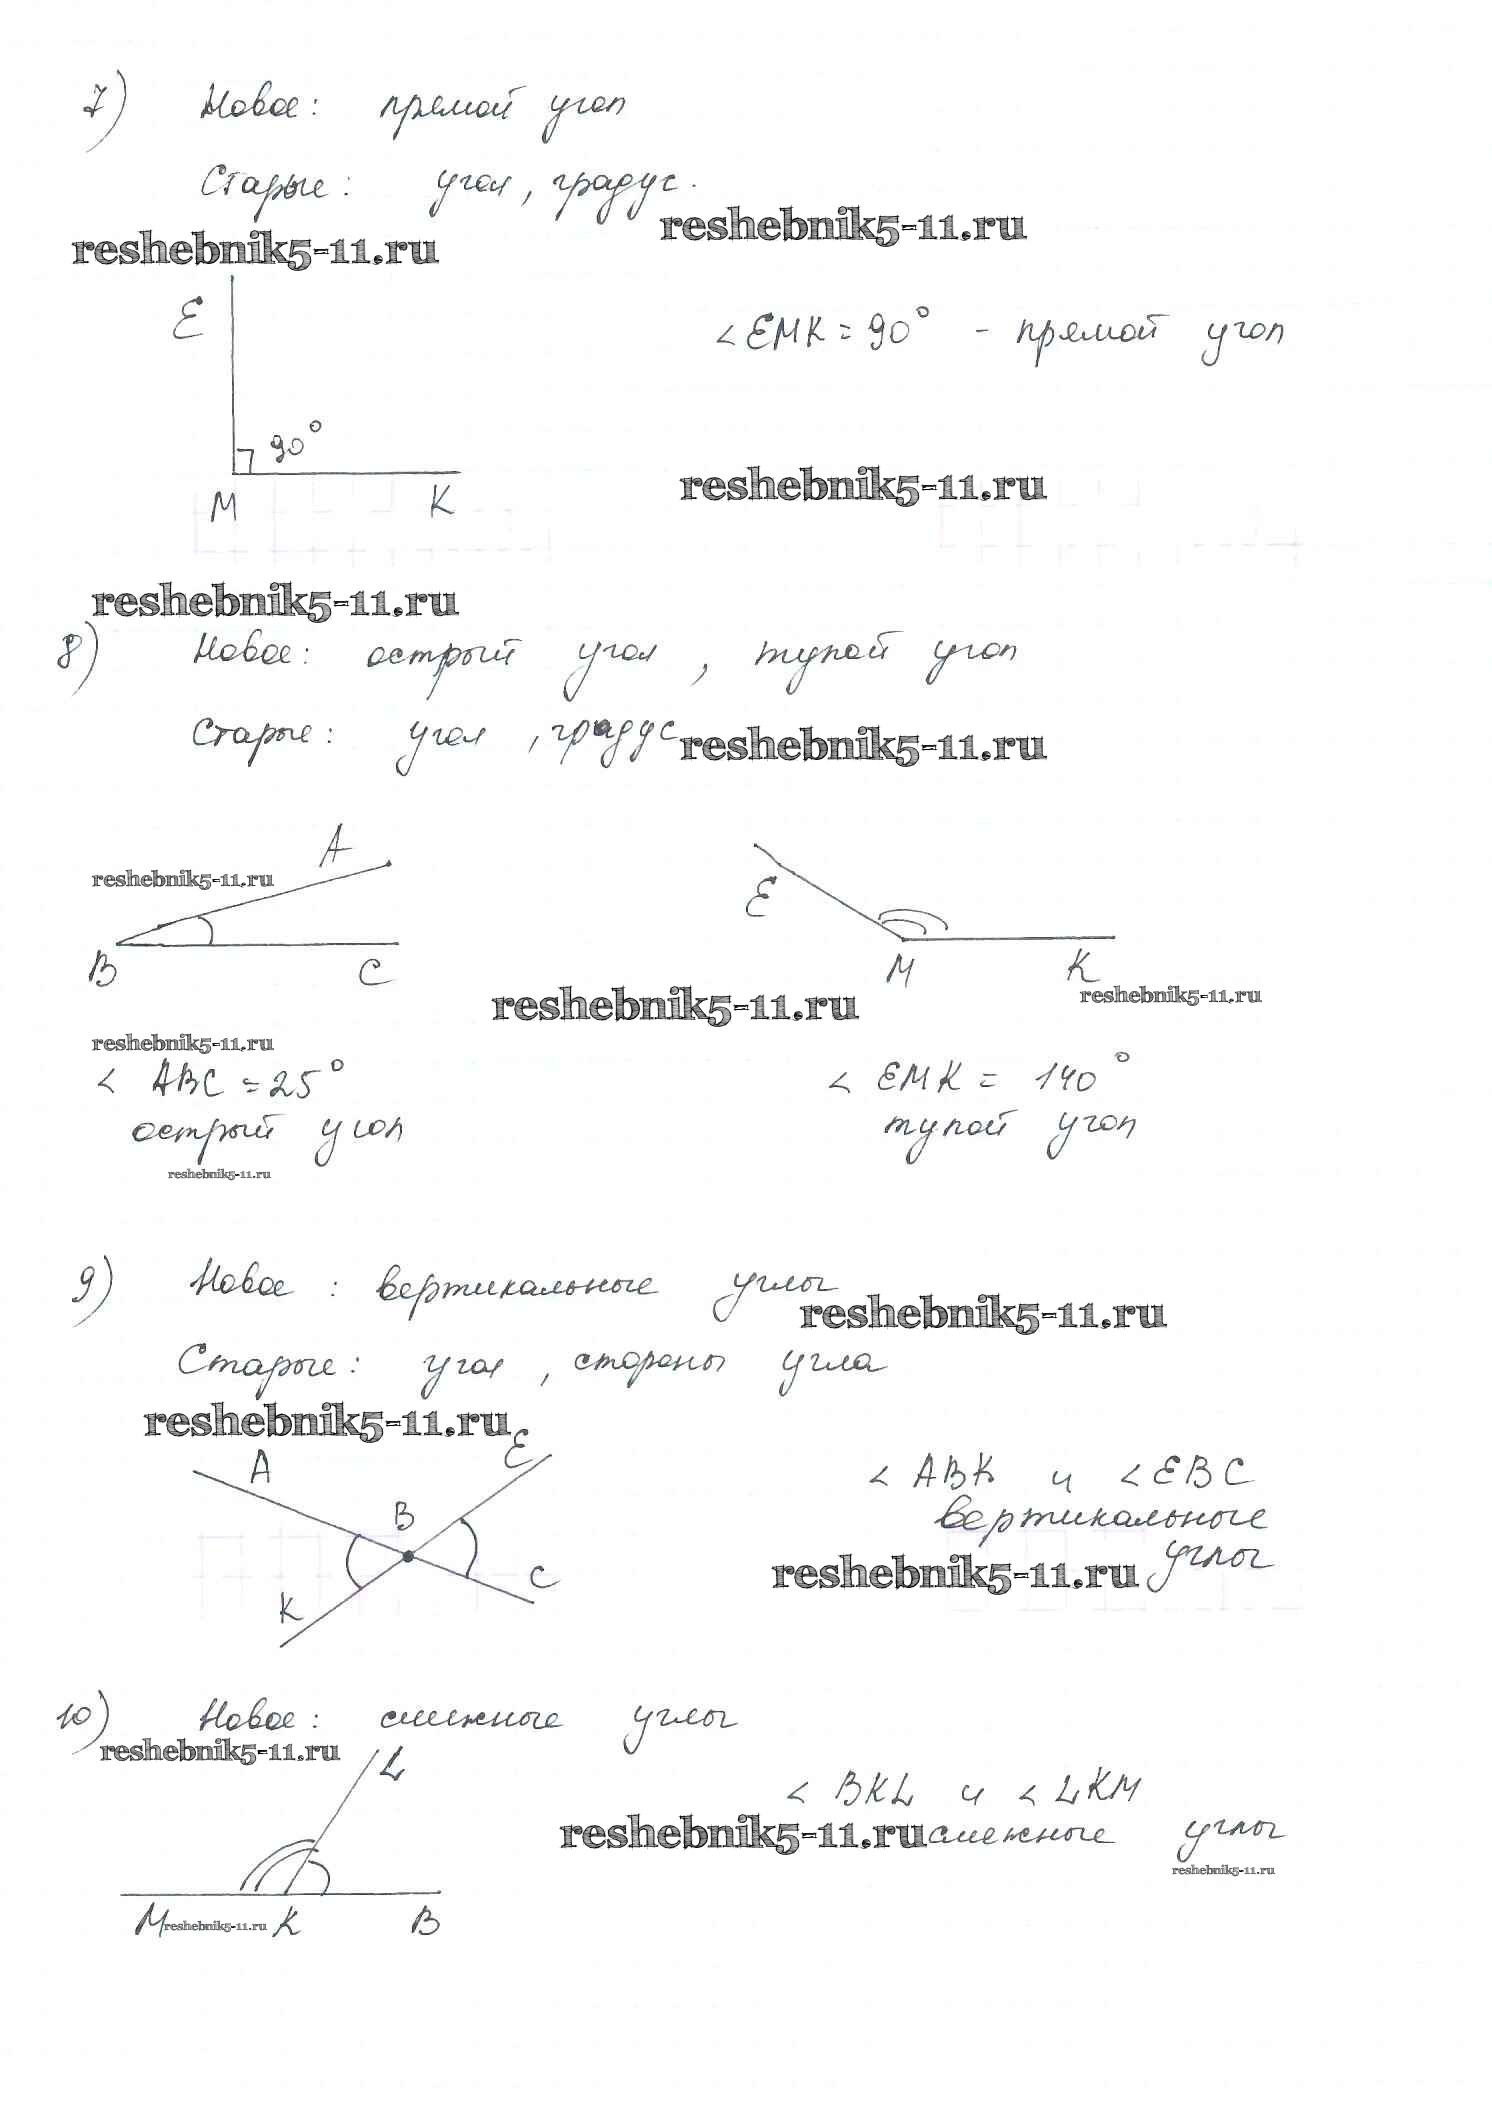 7) Новое: прямой угол
Старые: угол, градус.
reshebnik5-11.ru
reshebnik5-11.ru
E
∠EMK = 90° - прямой угол
90°
M K
reshebnik5-11.ru
reshebnik5-11.ru
8) Новое: острый угол, тупой угол
Старые: угол, градус
reshebnik5-11.ru
A
reshebnik5-11.ru
E
B C
M K
reshebnik5-11.ru
reshebnik5-11.ru
reshebnik5-11.ru
∠ ABC = 25°
∠ EMK = 140°
острый угол
тупой угол
reshebnik5-11.ru
9) Новое: вертикальные углы
reshebnik5-11.ru
Старые: угол, стороны угла
reshebnik5-11.ru
A E
∠ ABK и ∠EBC
B
вертикальные
K C
reshebnik5-11.ru углы
10) Новое: смежные углы
reshebnik5-11.ru
L
∠ BKL и ∠ LKM
reshebnik5-11.ru смежные углы
reshebnik5-11.ru
M reshebnik5-11.ru K B